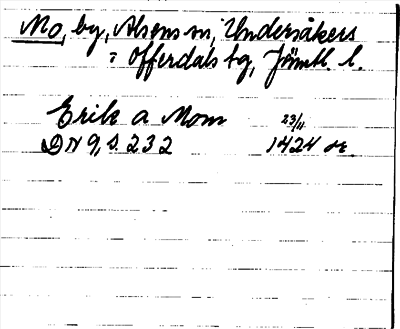 Mo, by, Alsens sn, Undersåkers
o Offerdals tg, Jämtl. l.
Erik a Mom 23/11
DN 9, s. 232 1424 or.